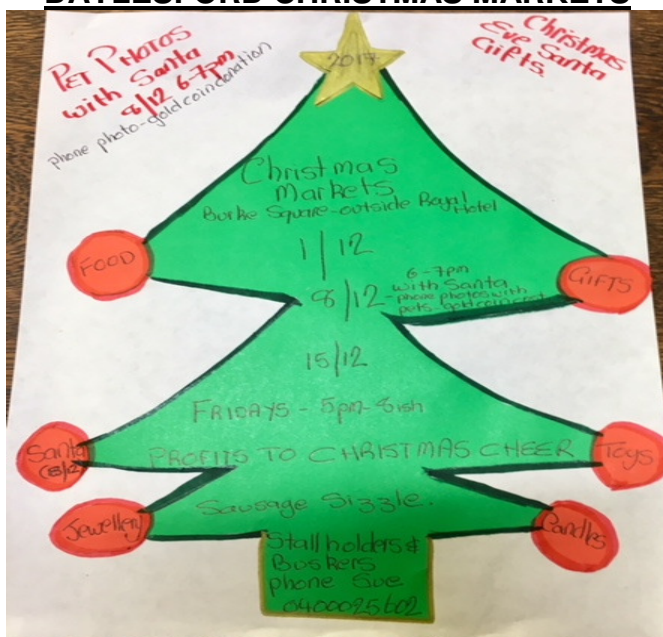 DAYLESFORD CHRISTMAS MARKETS
PET PHOTOS
with Santa
8/12 6-7pm
phone photo-gold coin donation
Christmas
Eve Santa
Gifts.
2017
Christmas
Markets
Burke Square-outside Royal Hotel
1/12
8/12
6-7pm
with Santa
-phone photos with
pets-gold coin cost
15/12
FRIDAYS - 5pm-8ish
PROFITS TO CHRISTMAS CHEER
Sausage Sizzle.
Stallholders &
Buskers
phone Sue
0400025602
FOOD
GIFTS
Santa
(8/12)
TOYS
Jewellery
Candles